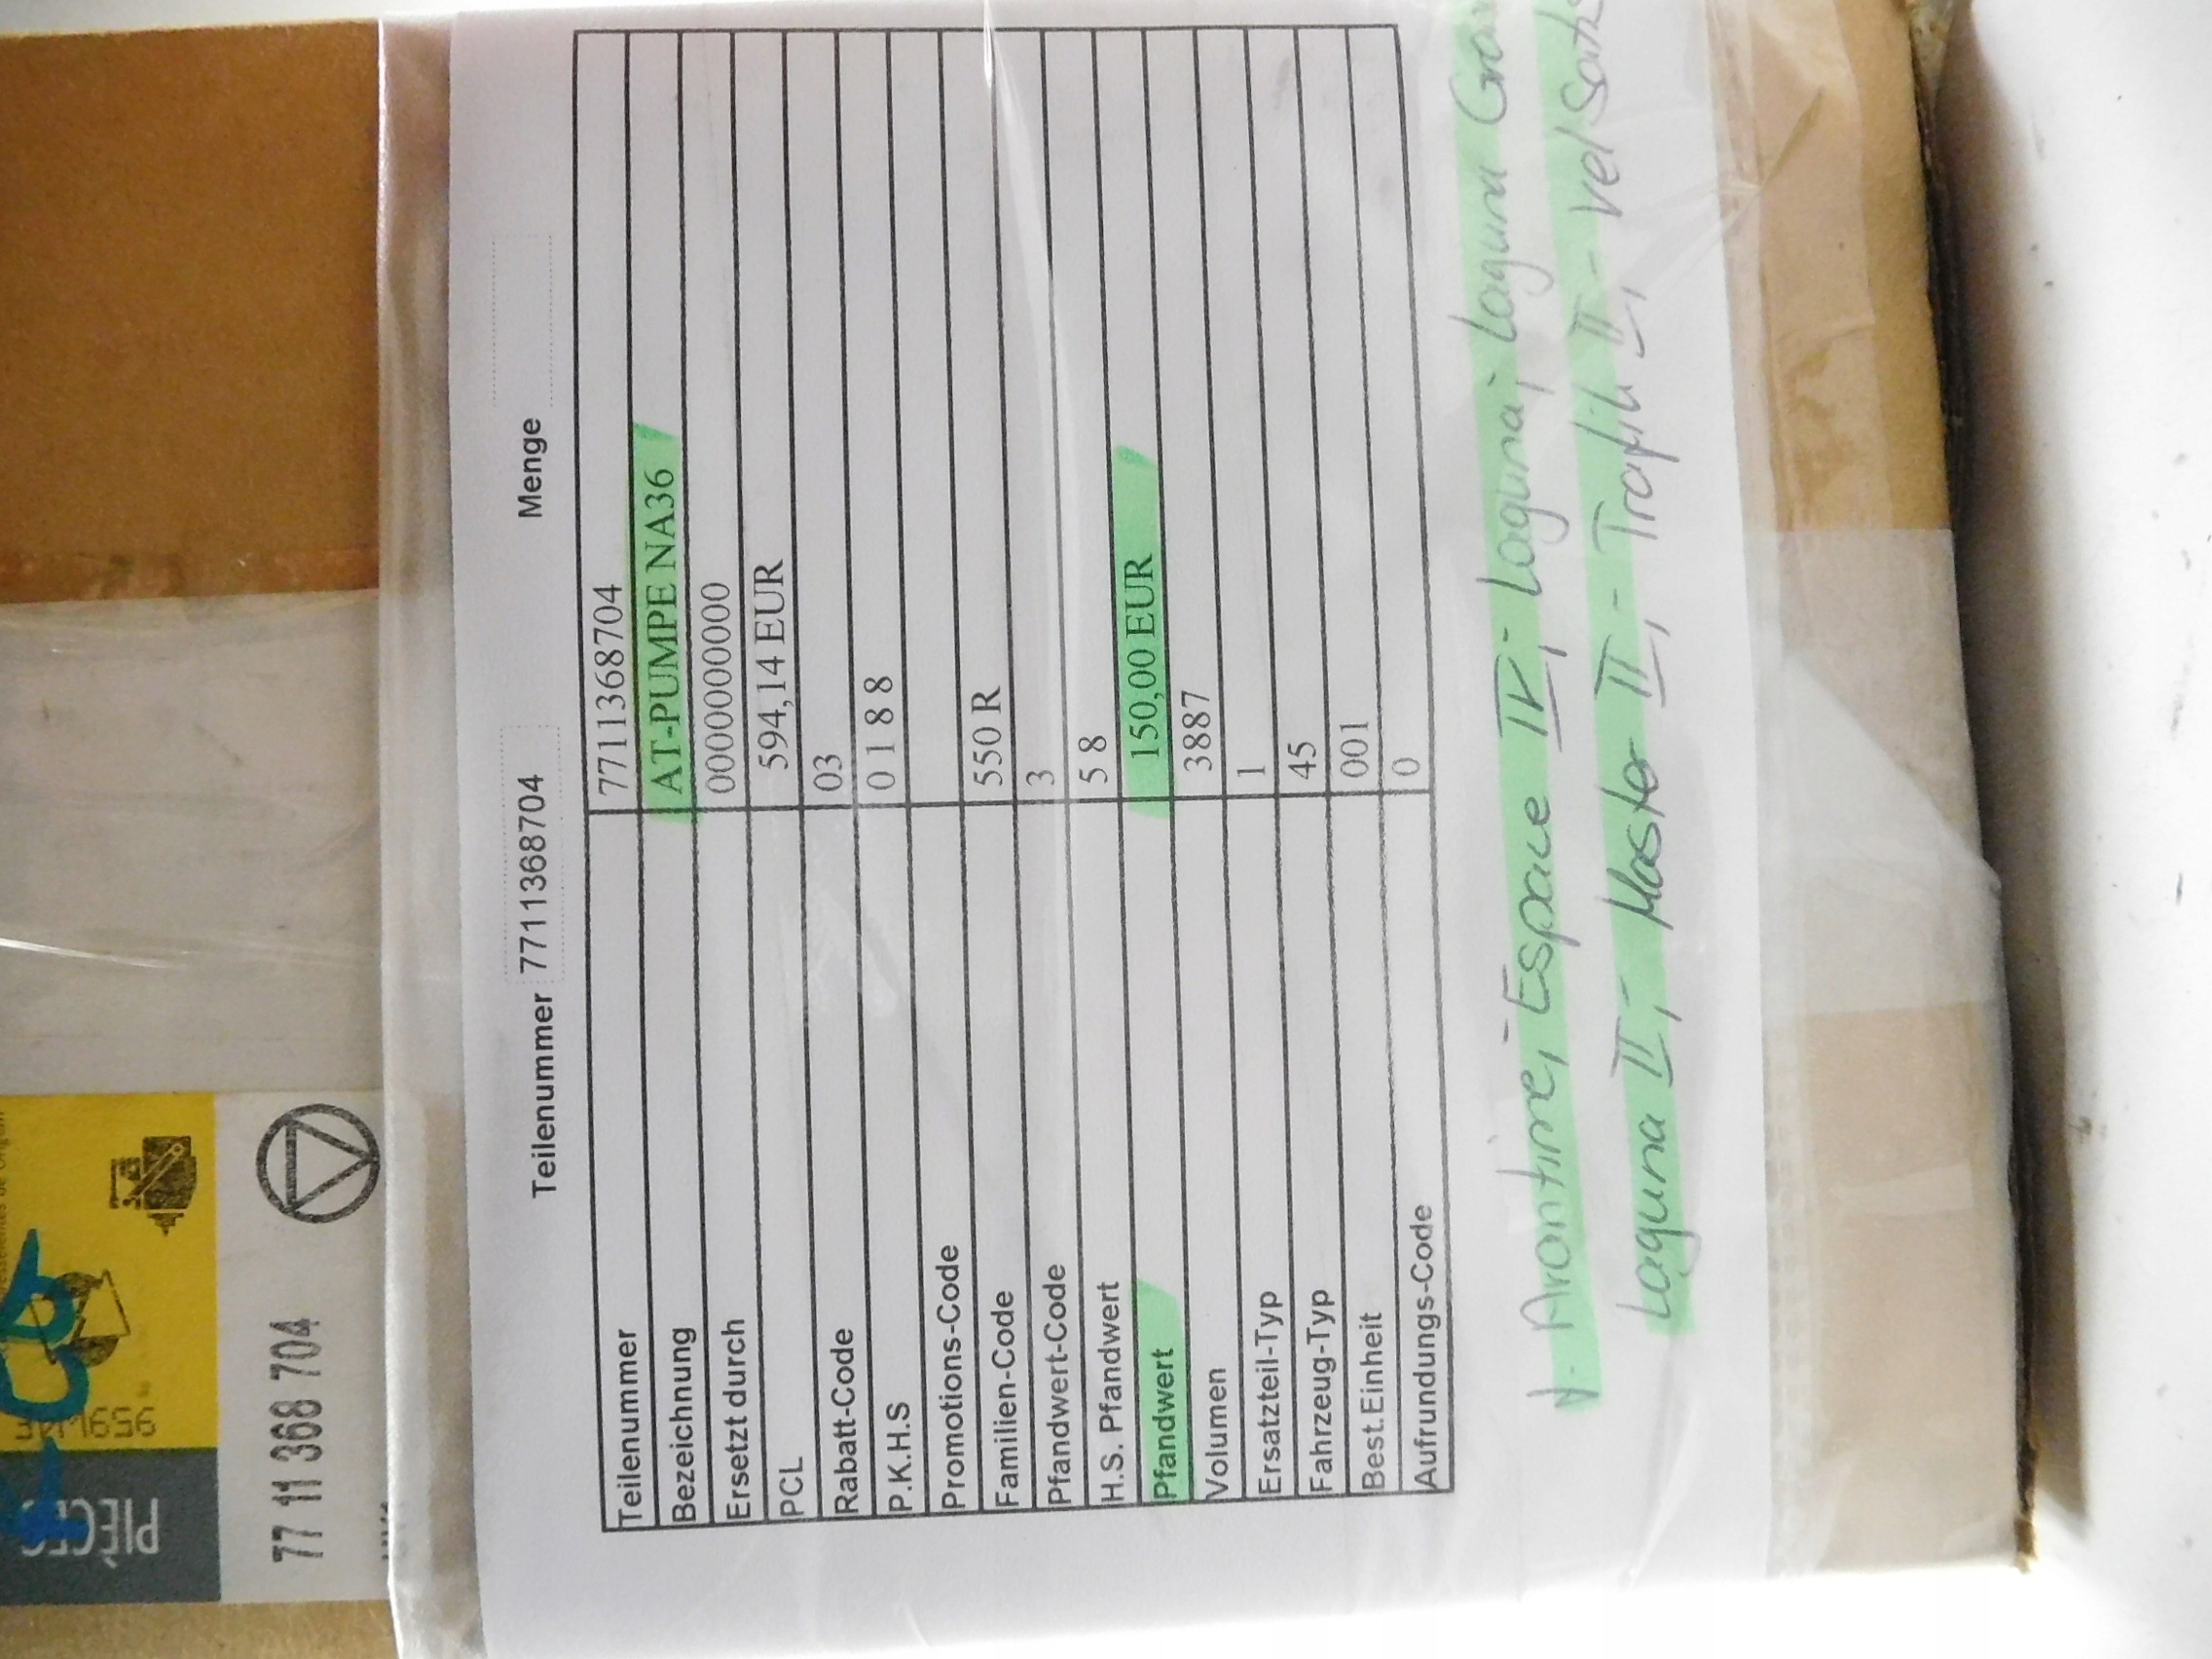 PIÈCES
77 11 368 704
Teilenummer 7711368704 Menge
Teilenummer 7711368704
Bezeichnung AT-PUMPE NA36
Ersetzt durch 0000000000
PCL 594,14 EUR
Rabatt-Code 03
P.K.H.S 0 1 8 8
Promotions-Code
Familien-Code 550 R
Pfandwert-Code 3
H.S. Pfandwert 5 8
Pfandwert 150,00 EUR
Volumen 3887
Ersatzteil-Typ 1
Fahrzeug-Typ 45
Best.Einheit 001
Aufrundungs-Code 0
Espace IV,- Laguna,- Laguna
Laguna II,- Master II,- Trafik II,- Vel Satis